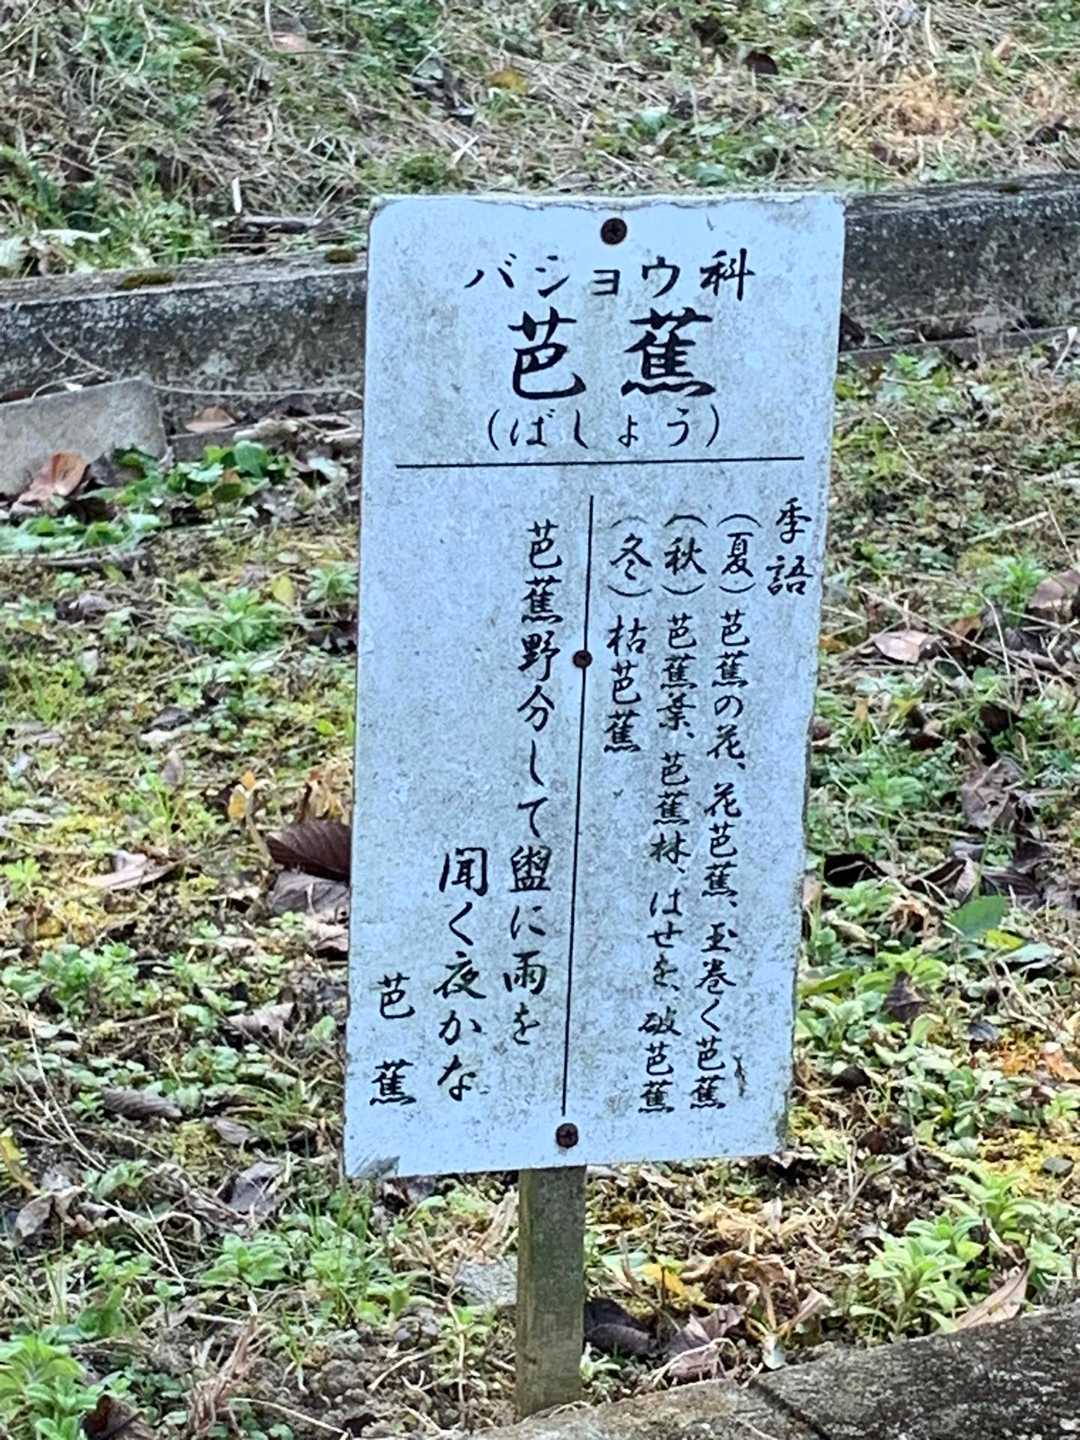 バショウ科
芭蕉
(ばしょう)
季語
(夏)芭蕉の花、花芭蕉、玉巻く芭蕉
(秋)芭蕉葉、芭蕉林、はせを、破芭蕉
(冬)枯芭蕉
芭蕉野分して盥に雨を
聞く夜かな
芭蕉